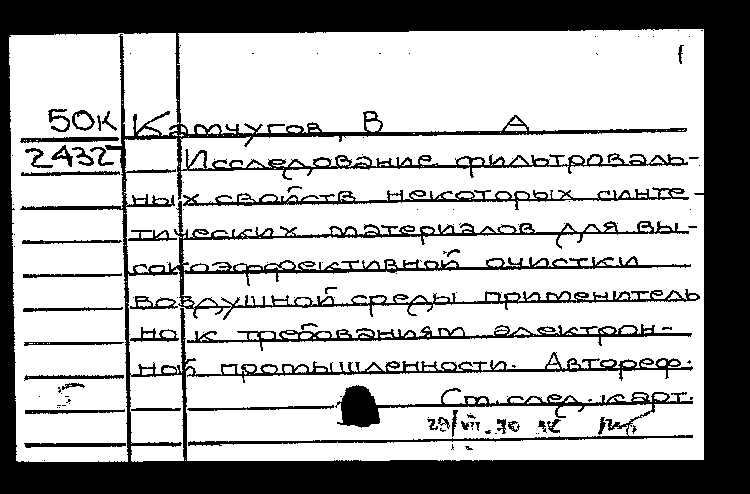 1
50К Камчугов, В А
2432 Исследование фильтроваль-
ных свойств некоторых синте-
тических материалов для вы-
сокоэффективной очистки
воздушной среды применитель
но к требованиям электрон-
ной промышленности. Автореф.
5 Ст. след. карт.
29/VII.70